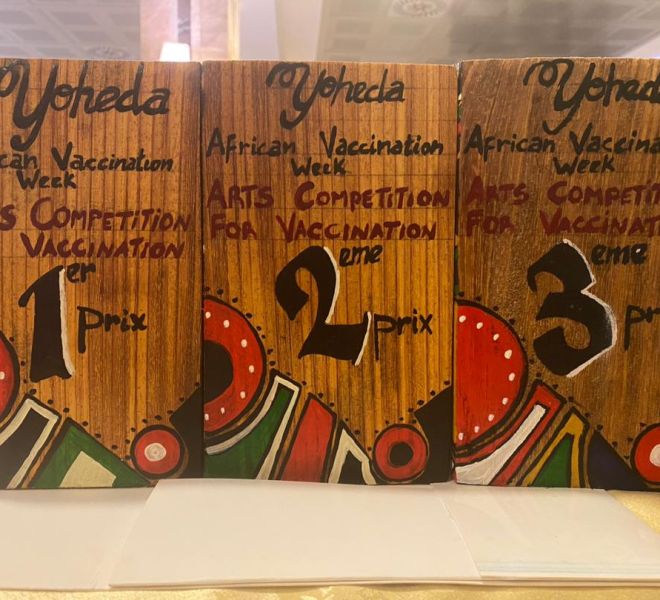 Yoheda
can Vaccination
Week
S COMPETITION
VACCINATION
1er
prix
Yoheda
African Vaccination
Week
ARTS COMPETITION
FOR VACCINATION
2eme
prix
Yoheda
African Vaccina
Week
ARTS COMPETIT
FOR VACCINATI
3eme
pr